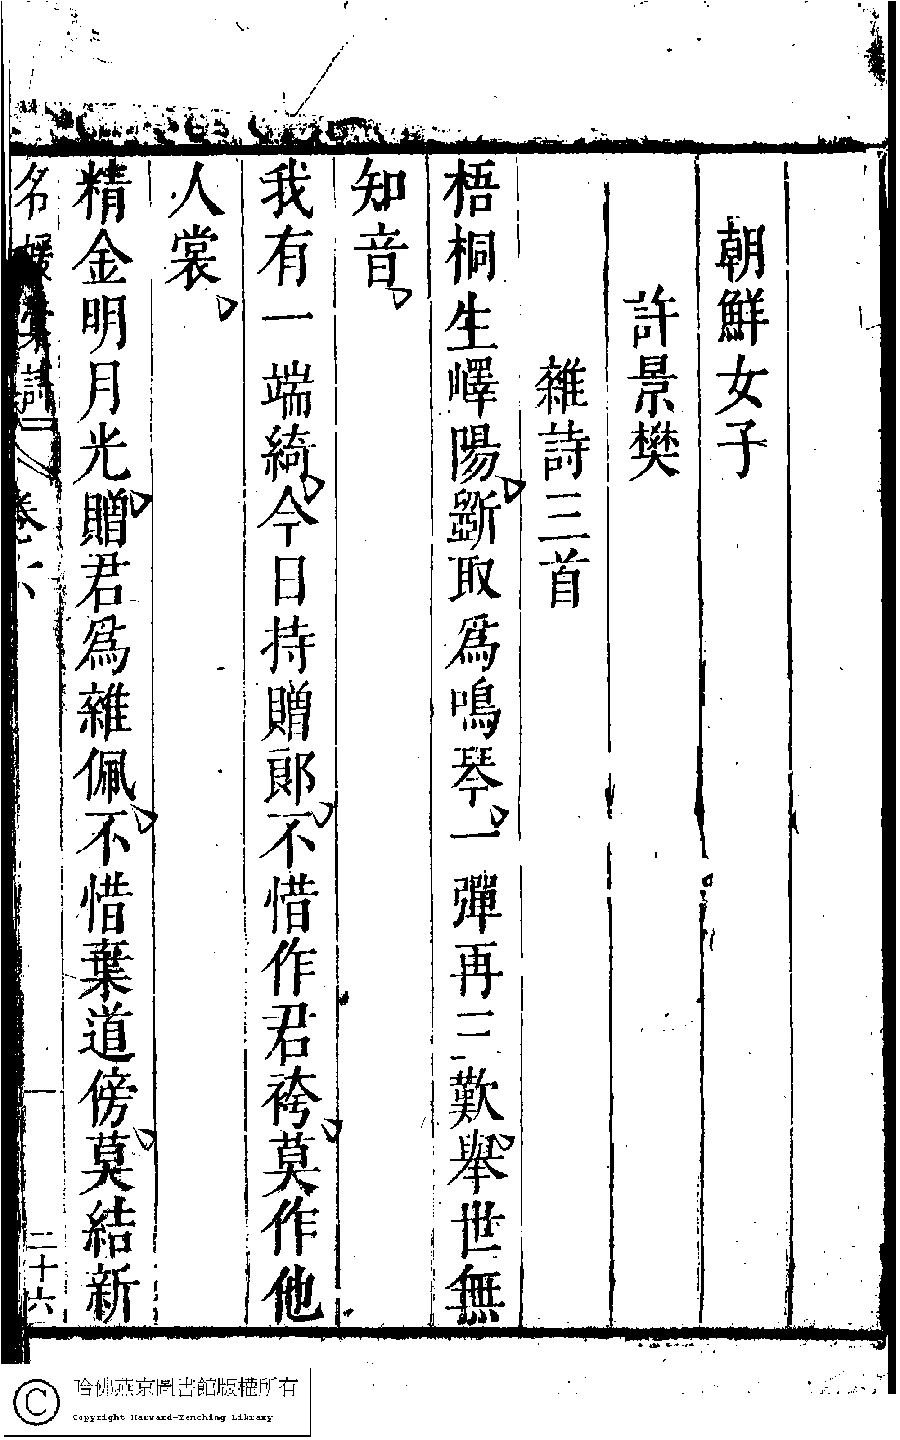 朝鮮女子
許景樊
雜詩三首
梧桐生嶧陽斲取爲鳴琴一彈再三歎舉世無
知音
我有一端綺今日持贈郎不惜作君袴莫作他
人裳
精金明月光贈君爲雜佩不惜葉道傍莫結新
名媛彙詩
卷六
二十六
哈佛燕京圖書館版權所有
Copyright Harvard-Yenching Library